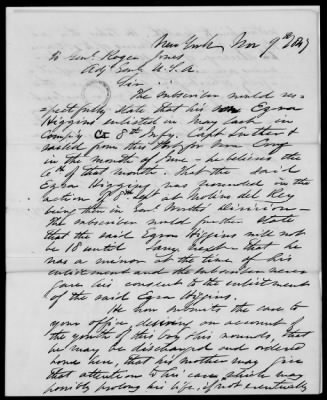 New York Nov 9th 1847
To Genl. Roger Jones
Adj Genl U.S.A.
Sir
The Subscriber would re-
spectfully State that his son Ezra
Higgins enlisted in May last in
Compy G 8th Infy. Capt
sailed from this Port for Vera Cruz
in the month of June – he believes the
6th of that month. That the said
Ezra Higgins was wounded in the
action of 8 Sep at Molino del Rey
being then in Genl Worths Division –
The subscriber would further State
that the said Ezra Higgins will not
be 18 until Jany next – that he
was a minor at the time of his
enlistment and the subscriber never
gave his consent to the enlistment
of the said Ezra Higgins.
He now submits the case to
your office, desiring on account of
the youth of this boy & his wounds, that
he may be discharged and ordered
home here, that his mother may give
that attention to his case, which may
possibly prolong his life, if not eventually